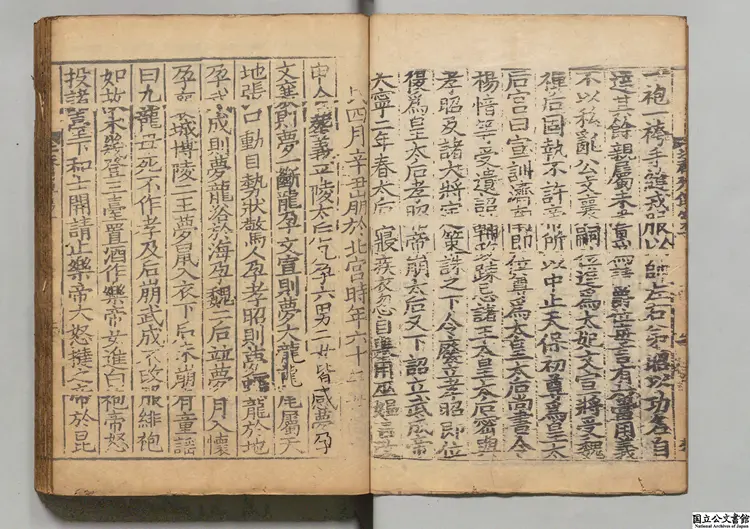 一袍一袴手縫戎服以帥左右弟昭以功名自
達其餘親屬未嘗爲請爵位每言有當用義
不以私亂公文襄嗣位進爲太妃文宣將受魏
禪后固執不許帝所以中止天保初尊爲皇太
后宮曰宣訓濟南即位尊爲太皇太后尚書令
楊愔等受遺詔輔政踈忌諸王太皇太后密與
孝昭及諸大將定策誅之下令廢立孝昭即位
復爲皇太后孝昭帝崩太后又下詔立武成帝
大寧二年春太后寢疾衣忽自舉用巫媼言
四月辛丑崩於北宮時年六十
申合葬義平陵太后凡孕六男二女皆感夢孕
文襄則夢一斷龍孕文宣則夢大龍尾屬天
地張口動目勢狀驚人孕孝昭則夢龍於地
孕武成則夢龍浴於海孕魏二后並夢月入懷
孕襄城博陵二王夢鼠入衣下后未崩有童謠
曰九龍母死不作孝及后崩武成不改服緋袍
如故未幾登三臺置酒作樂帝女進白袍帝怒
投諸臺下和士開請止樂帝大怒撻之帝於昆
国立公文書館
National Archives of Japan